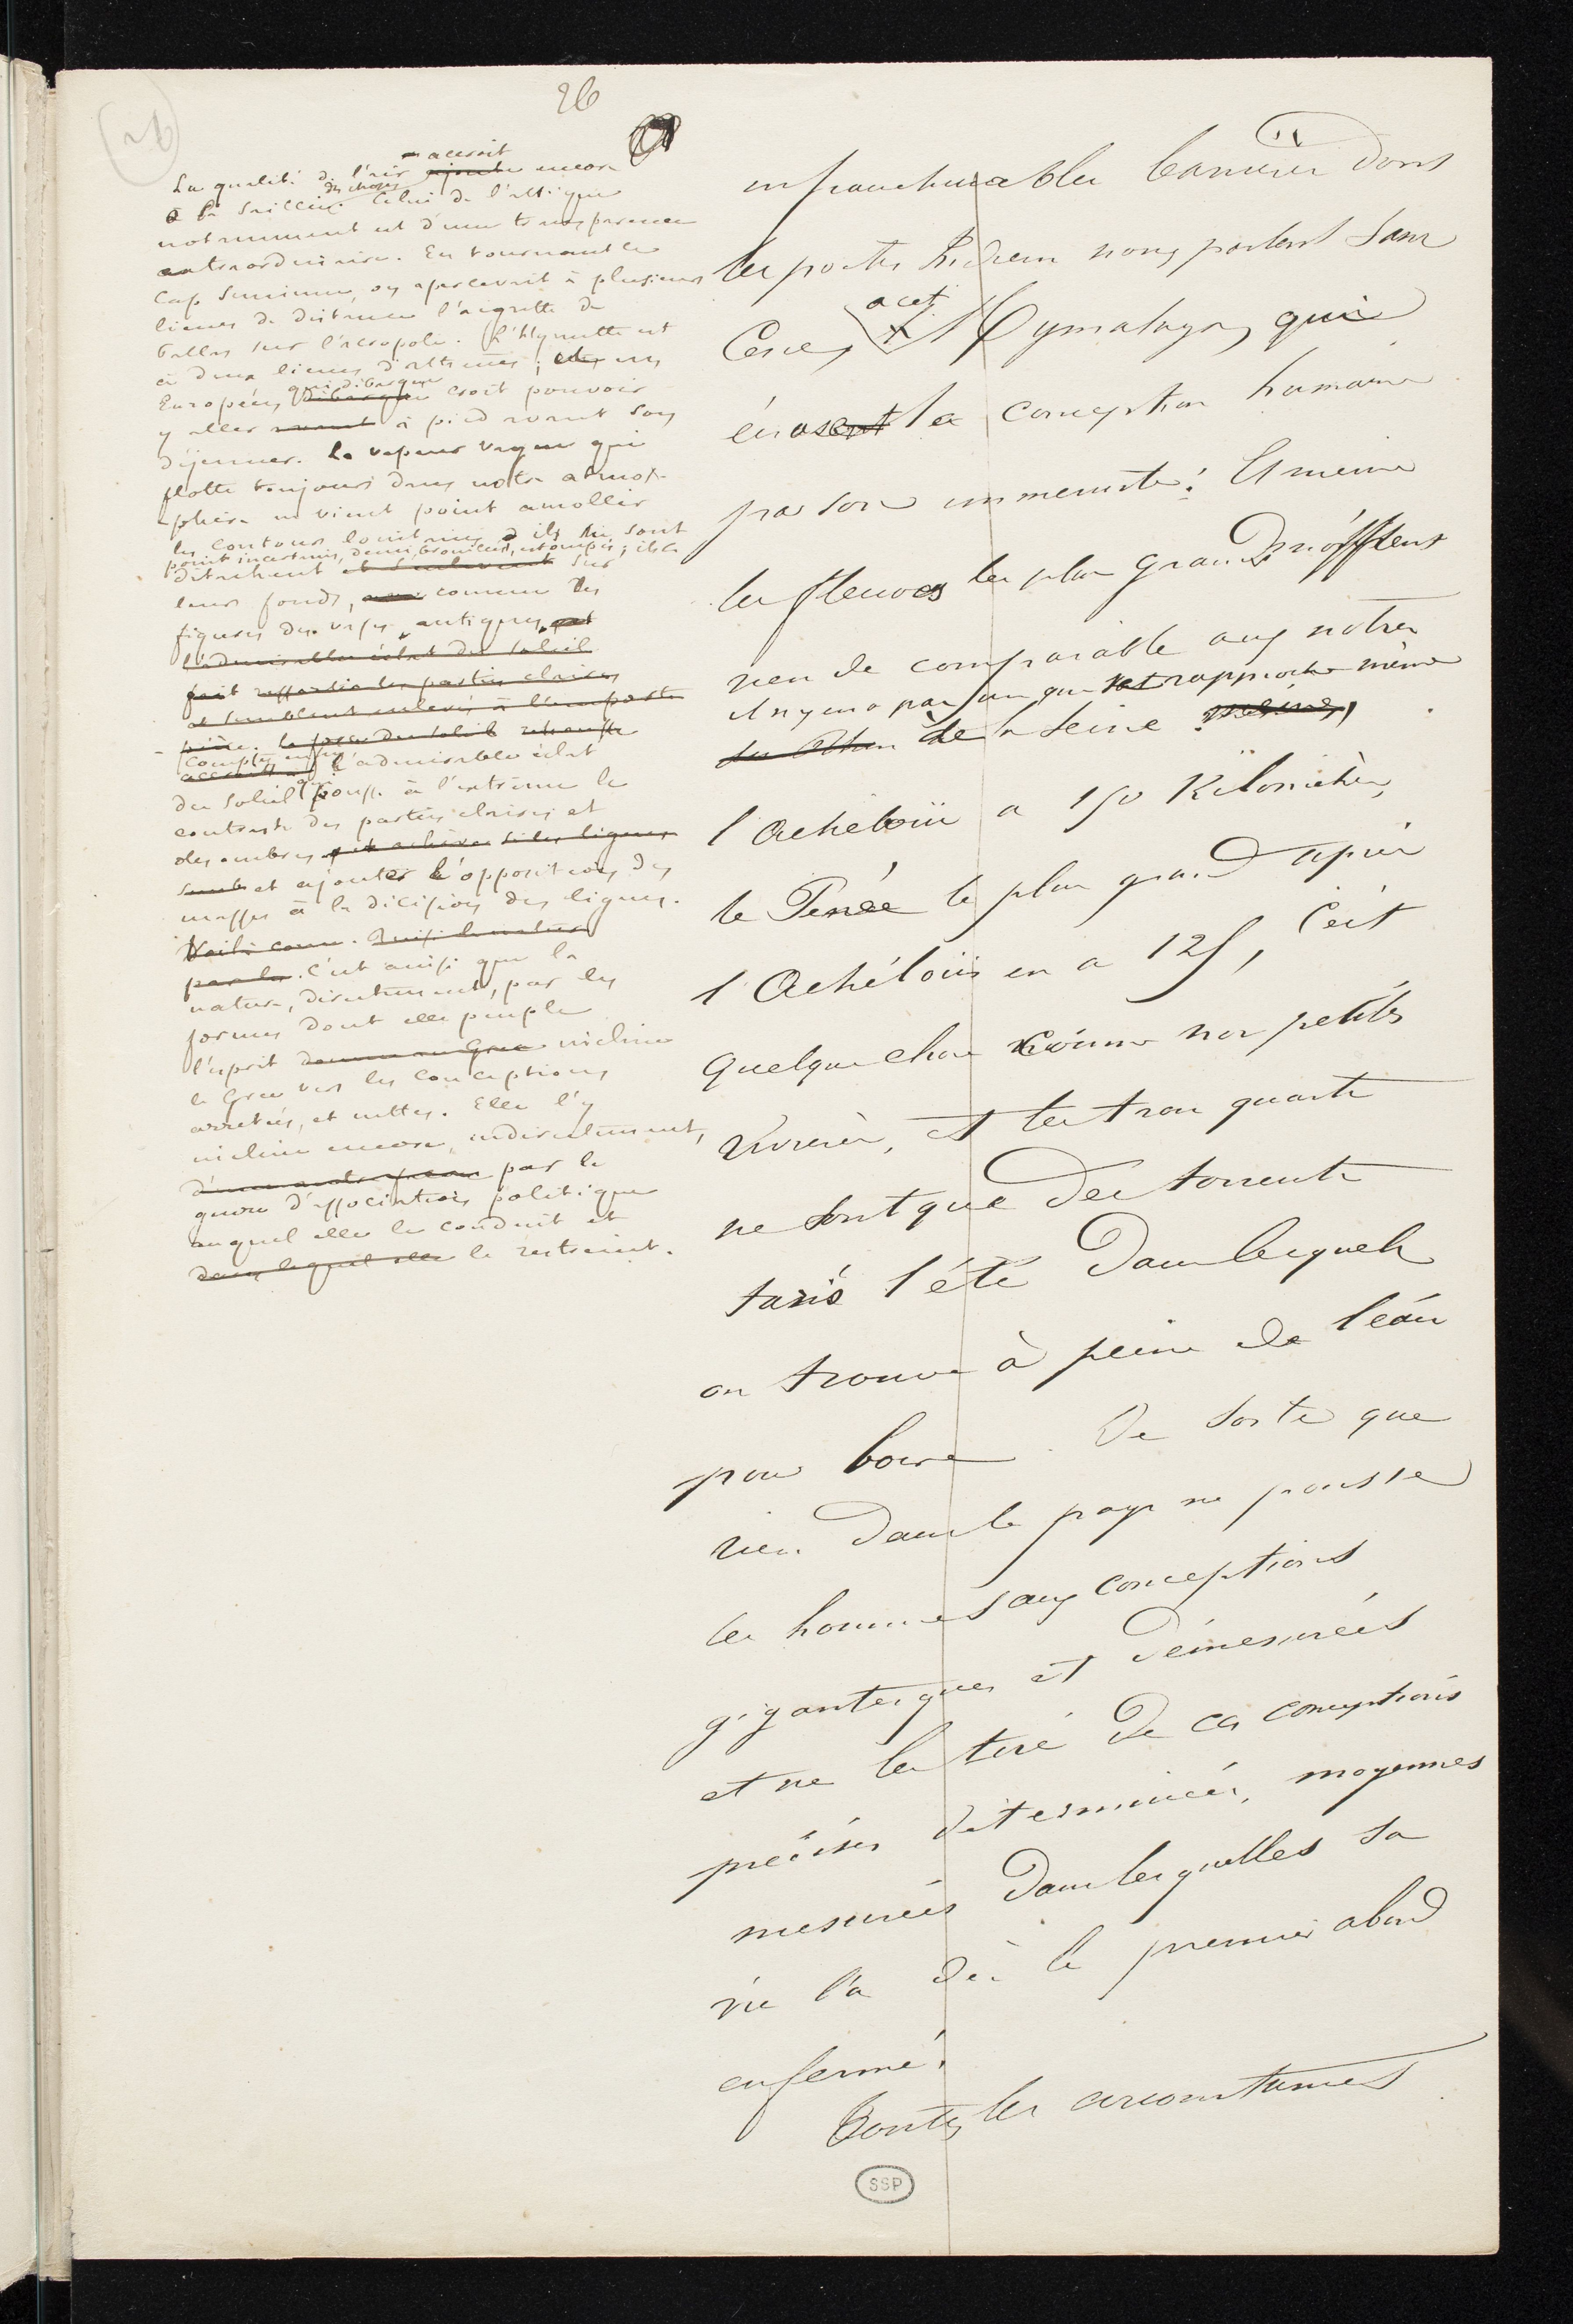 26
26
La qualité de l'air accroit ajoute encore
à la saillie des choses. Celui de l'Attique
notamment est d'une transparence
extraordinaire. En tournant le
Cap Sunium, on apercevait à plusieurs
lieues de distance l'aigrette de
Pallas sur l'acropole. L'Hymette est
à deux lieues d'Athènes ; un
Européen qui débarque débarqué croit pouvoir
y aller avant à pied avant son
déjeuner. La vapeur vague qui
flotte toujours dans notre atmos-
-phère ne vient point amollir
les contours lointains ; ils ne sont
point incertains, demi-brouillés, estompés ; ils se
détachent et s'enlèvent sur
leurs fonds, comme les
figures des vases antiques. et
l'admirable éclat du soleil
fait ressortir les parties claires
et semblent enlevés à l'emporte
pièce. le soleil
Comptez enfin l'admirable éclat
du soleil qui pousse à l'extrême le
contraste des parties claires et
des ombres et achève si les lignes
sont et ajoute l'opposition des
masses à la décision des lignes.
Voilà comm. Ainsi la nature
par la. C'est ainsi que la
nature, directement, par les
formes dont elle peuple
l'esprit donne au Grec incline
le Grec vers les conceptions
arrêtées, et nettes. Elle l'y
incline encore, indirectement,
par le
genre d'association politique
auquel elle le conduit et
dans lequel elle le restreint.
infranchissables barrières dont
les poètes Indiens nous parlent sans
Cesse, à cet Hymalaya, qui
écrasent la conception humaine
par son immensité. Et même
les fleuves les plus grands n'offrent
rien de comparable aux notres
il n'y en a pas un qui se rapproche même
de la Seine.
l'Acheloüs a 150 Kilomètres,
le Penée le plus grand après
l'Achéloüs en a 125, C'est
quelque chose comme nos petites
rivières, et les trois quarts
ne sont que des torrents
taris l'été dans lesquels
on trouve à peine de l'eau
pour boire. De sorte que
rien dans le pays ne pousse
les hommes aux conceptions
gigantesques et démesurées
et ne les tire de ces conceptions
précises déterminées, moyennes
mesurées dans lesquelles sa
vie l'a dès le premier abord
enfermé.
Toutes les circonstances
SSP